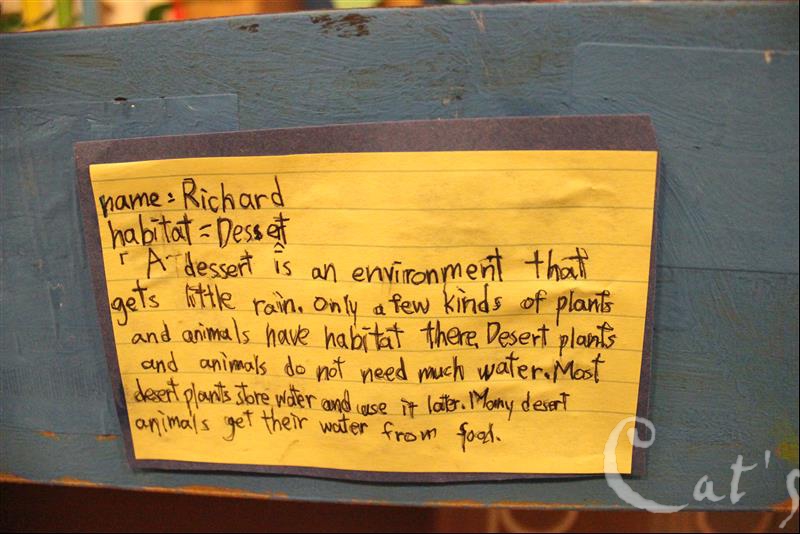 name: Richard
habitat = Dessert
A dessert is an environment that
gets little rain. Only a few kinds of plants
and animals have habitat there. Desert plants
and animals do not need much water. Most
desert plants store water and use it later. Many desert
animals get their water from food.
Cat's